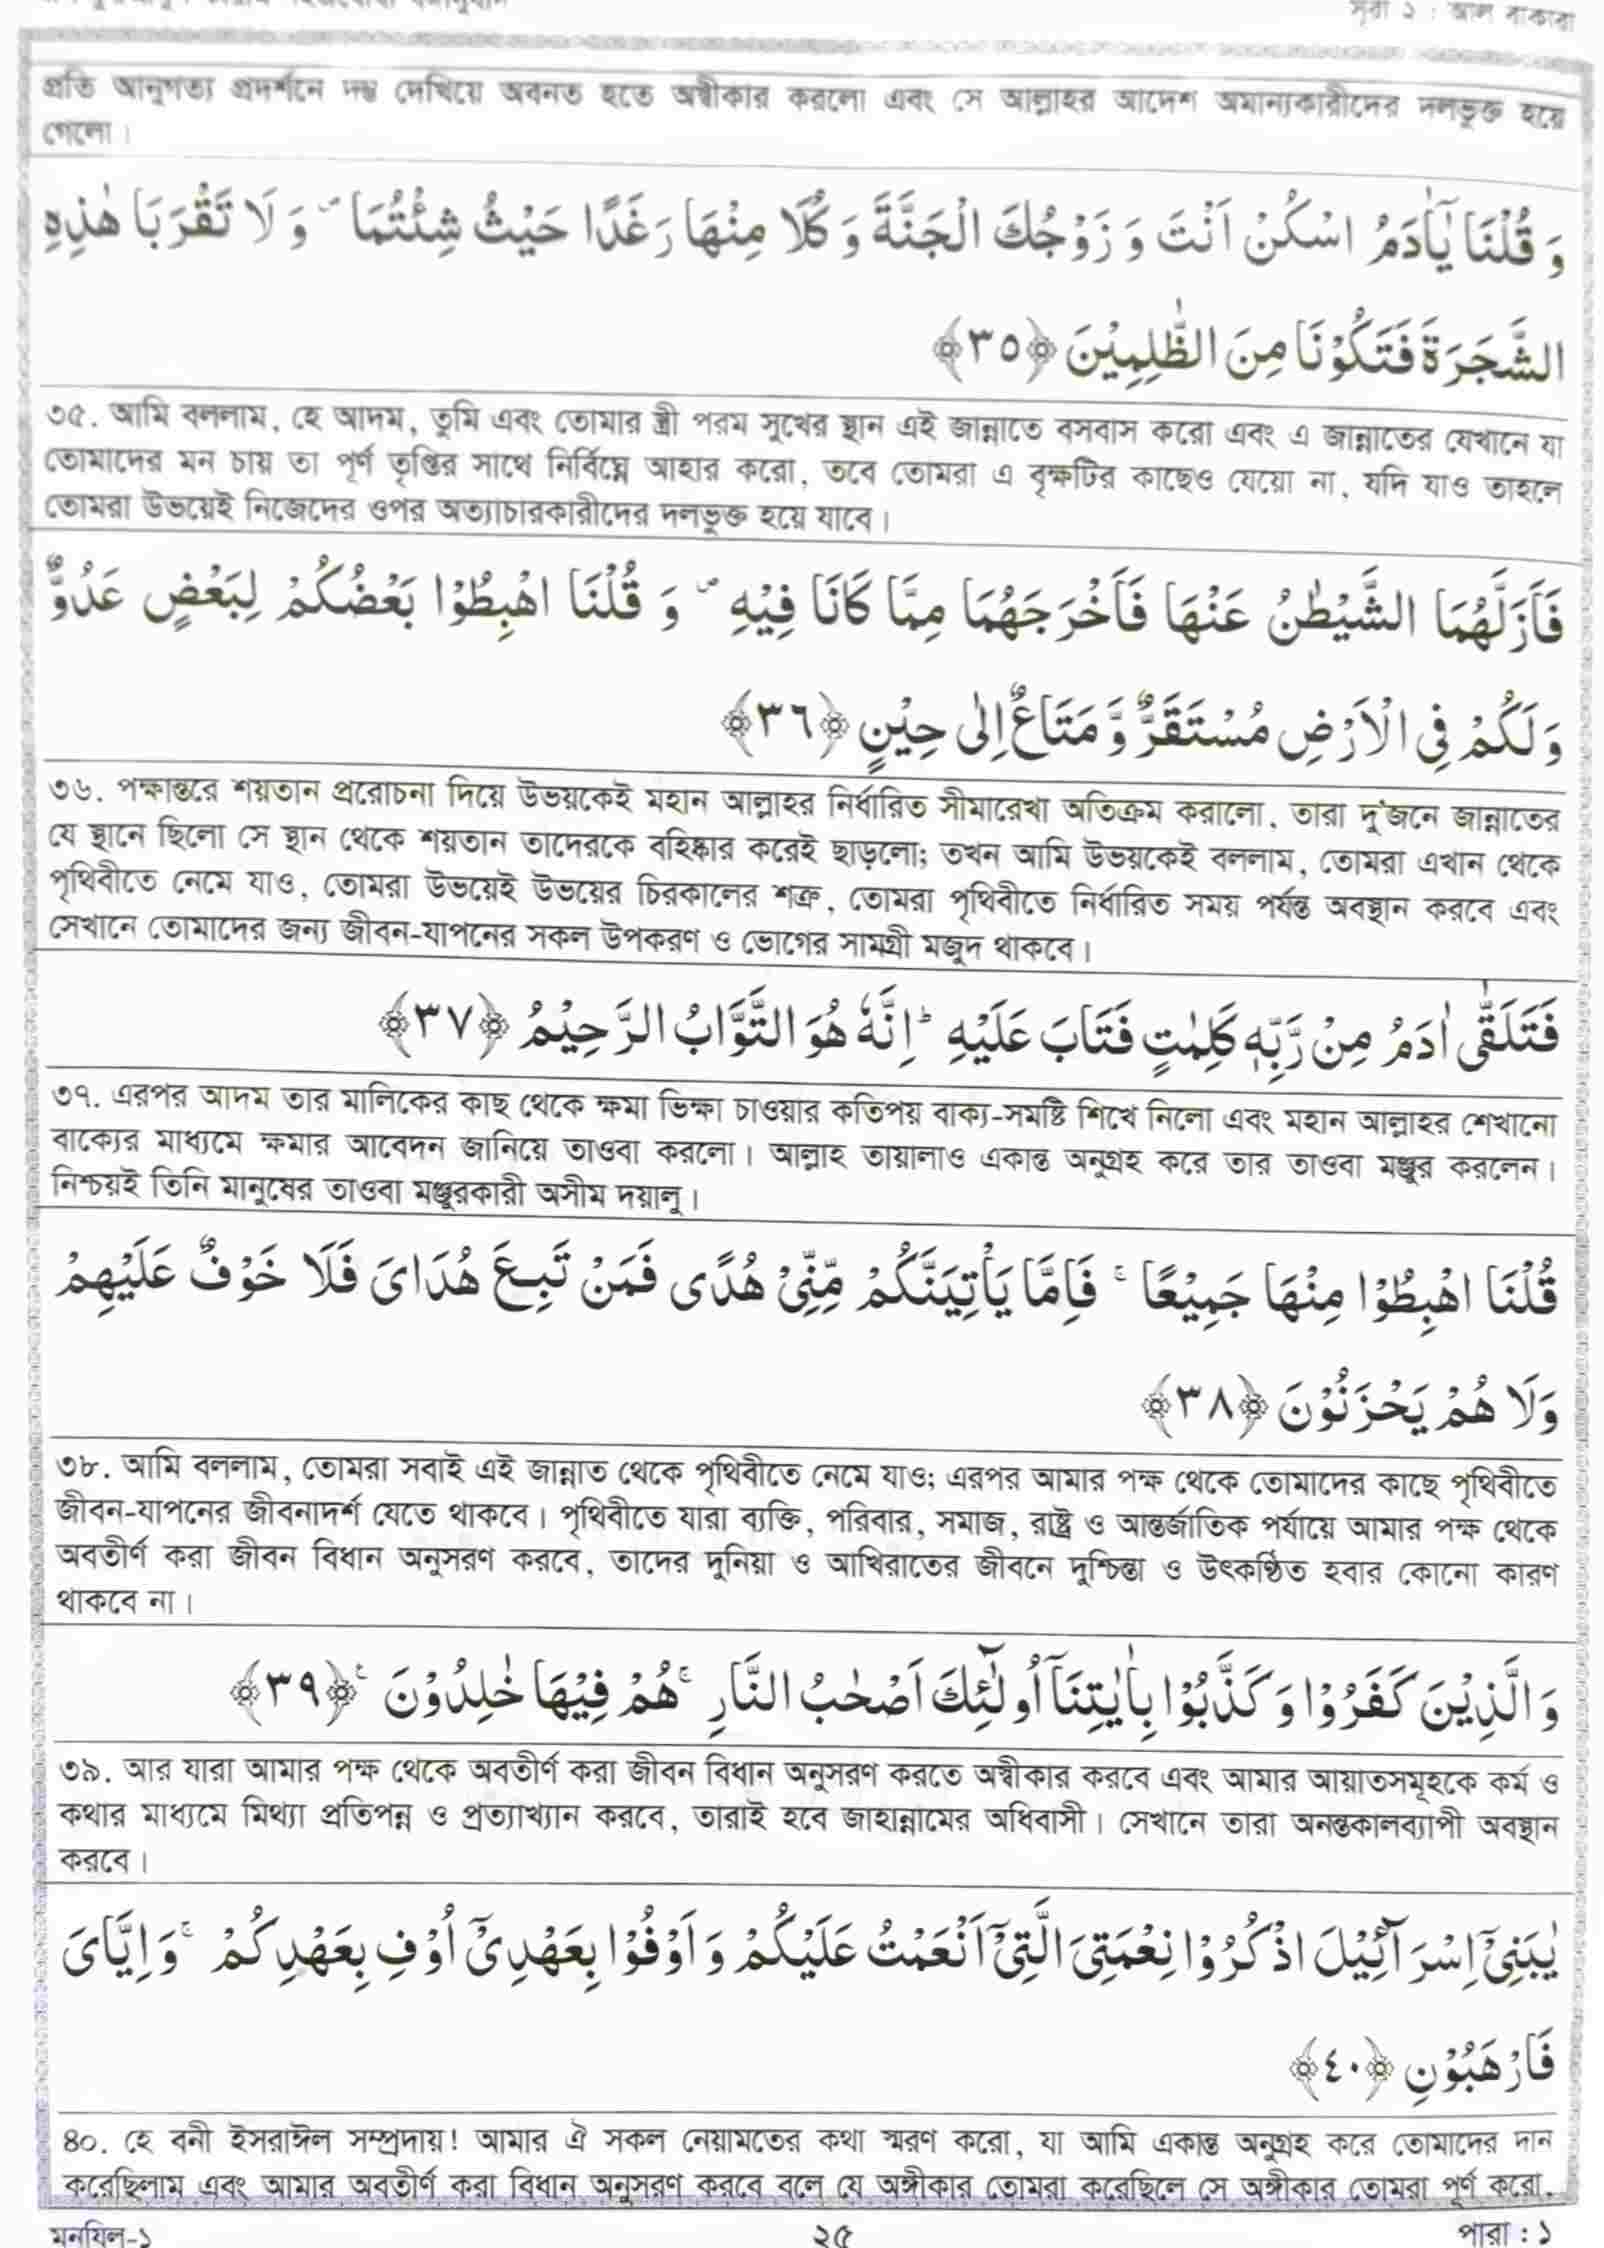 সূরা ২ : আল বাকারা
প্রতি আনুগত্য প্রদর্শনে দম্ভ দেখিয়ে অবনত হতে অস্বীকার করলো এবং সে আল্লাহর আদেশ অমান্যকারীদের দলভুক্ত হয়ে
গেলো।
وَ قُلْنَا يٰۤاٰدَمُ اسْكُنْ اَنْتَ وَ زَوْجُكَ الْجَنَّةَ وَ كُلَا مِنْهَا رَغَدًا حَيْثُ شِئْتُمَا ۪ وَ لَا تَقْرَبَا هٰذِهِ
الشَّجَرَةَ فَتَكُوْنَا مِنَ الظّٰلِمِيْنَ ﴿٣٥﴾
৩৫. আমি বললাম, হে আদম, তুমি এবং তোমার স্ত্রী পরম সুখের স্থান এই জান্নাতে বসবাস করো এবং এ জান্নাতের যেখানে যা
তোমাদের মন চায় তা পূর্ণ তৃপ্তির সাথে নির্বিঘ্নে আহার করো, তবে তোমরা এ বৃক্ষটির কাছেও যেয়ো না, যদি যাও তাহলে
তোমরা উভয়েই নিজেদের ওপর অত্যাচারকারীদের দলভুক্ত হয়ে যাবে।
فَاَزَلَّهُمَا الشَّيْطٰنُ عَنْهَا فَاَخْرَجَهُمَا مِمَّا كَانَا فِيْهِ ۪ وَ قُلْنَا اهْبِطُوْا بَعْضُكُمْ لِبَعْضٍ عَدُوٌّ
وَ لَكُمْ فِي الْاَرْضِ مُسْتَقَرٌّ وَّ مَتَاعٌ اِلٰى حِيْنٍ ﴿٣٦﴾
৩৬. পক্ষান্তরে শয়তান প্ররোচনা দিয়ে উভয়কেই মহান আল্লাহর নির্ধারিত সীমারেখা অতিক্রম করালো, তারা দু'জনে জান্নাতের
যে স্থানে ছিলো সে স্থান থেকে শয়তান তাদেরকে বহিষ্কার করেই ছাড়লো; তখন আমি উভয়কেই বললাম, তোমরা এখান থেকে
পৃথিবীতে নেমে যাও, তোমরা উভয়েই উভয়ের চিরকালের শত্রু, তোমরা পৃথিবীতে নির্ধারিত সময় পর্যন্ত অবস্থান করবে এবং
সেখানে তোমাদের জন্য জীবন-যাপনের সকল উপকরণ ও ভোগের সামগ্রী মজুদ থাকবে।
فَتَلَقّٰۤى اٰدَمُ مِنْ رَّبِّهٖ كَلِمٰتٍ فَتَابَ عَلَيْهِ ؕ اِنَّهٗ هُوَ التَّوَّابُ الرَّحِيْمُ ﴿٣٧﴾
৩৭. এরপর আদম তার মালিকের কাছ থেকে ক্ষমা ভিক্ষা চাওয়ার কতিপয় বাক্য-সমষ্টি শিখে নিলো এবং মহান আল্লাহর শেখানো
বাক্যের মাধ্যমে ক্ষমার আবেদন জানিয়ে তাওবা করলো। আল্লাহ তায়ালাও একান্ত অনুগ্রহ করে তার তাওবা মঞ্জুর করলেন।
নিশ্চয়ই তিনি মানুষের তাওবা মঞ্জুরকারী অসীম দয়ালু।
قُلْنَا اهْبِطُوْا مِنْهَا جَمِيْعًا ۚ فَاِمَّا يَاْتِيَنَّكُمْ مِّنِّيْ هُدًى فَمَنْ تَبِعَ هُدَايَ فَلَا خَوْفٌ عَلَيْهِمْ
وَلَا هُمْ يَحْزَنُوْنَ ﴿٣٨﴾
৩৮. আমি বললাম, তোমরা সবাই এই জান্নাত থেকে পৃথিবীতে নেমে যাও; এরপর আমার পক্ষ থেকে তোমাদের কাছে পৃথিবীতে
জীবন-যাপনের জীবনাদর্শ যেতে থাকবে। পৃথিবীতে যারা ব্যক্তি, পরিবার, সমাজ, রাষ্ট্র ও আন্তর্জাতিক পর্যায়ে আমার পক্ষ থেকে
অবতীর্ণ করা জীবন বিধান অনুসরণ করবে, তাদের দুনিয়া ও আখিরাতের জীবনে দুশ্চিন্তা ও উৎকণ্ঠিত হবার কোনো কারণ
থাকবে না।
وَ الَّذِيْنَ كَفَرُوْا وَ كَذَّبُوْا بِاٰيٰتِنَاۤ اُولٰٓئِكَ اَصْحٰبُ النَّارِ ۚ هُمْ فِيْهَا خٰلِدُوْنَ ۠ ﴿٣٩﴾
৩৯. আর যারা আমার পক্ষ থেকে অবতীর্ণ করা জীবন বিধান অনুসরণ করতে অস্বীকার করবে এবং আমার আয়াতসমূহকে কর্ম ও
কথার মাধ্যমে মিথ্যা প্রতিপন্ন ও প্রত্যাখ্যান করবে, তারাই হবে জাহান্নামের অধিবাসী। সেখানে তারা অনন্তকালব্যাপী অবস্থান
করবে।
يٰبَنِيْۤ اِسْرَآئِيْلَ اذْكُرُوْا نِعْمَتِيَ الَّتِيْۤ اَنْعَمْتُ عَلَيْكُمْ وَ اَوْفُوْا بِعَهْدِيْۤ اُوْفِ بِعَهْدِكُمْ ۚ وَ اِيَّايَ
فَارْهَبُوْنِ ﴿٤٠﴾
৪০. হে বনী ইসরাঈল সম্প্রদায়! আমার ঐ সকল নেয়ামতের কথা স্মরণ করো, যা আমি একান্ত অনুগ্রহ করে তোমাদের দান
করেছিলাম এবং আমার অবতীর্ণ করা বিধান অনুসরণ করবে বলে যে অঙ্গীকার তোমরা করেছিলে সে অঙ্গীকার তোমরা পূর্ণ করো,
মনযিল-১
২৫
পারা : ১